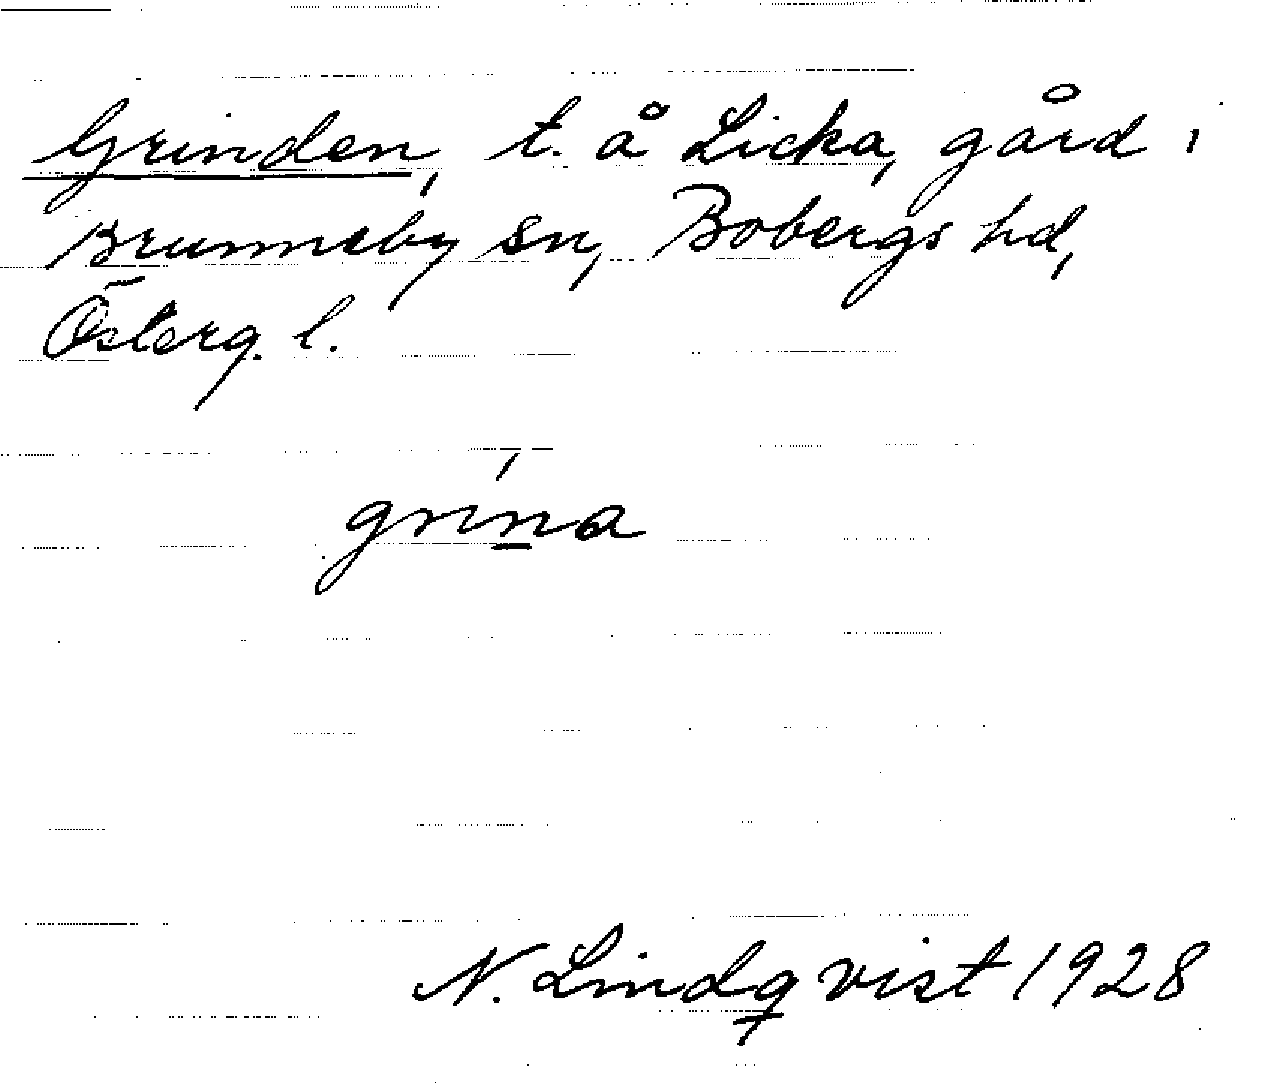 Grinden, t. å Licka, gård i
Brunneby sn, Bobergs hd,
Österg. l.
grina
N. Lindqvist 1928